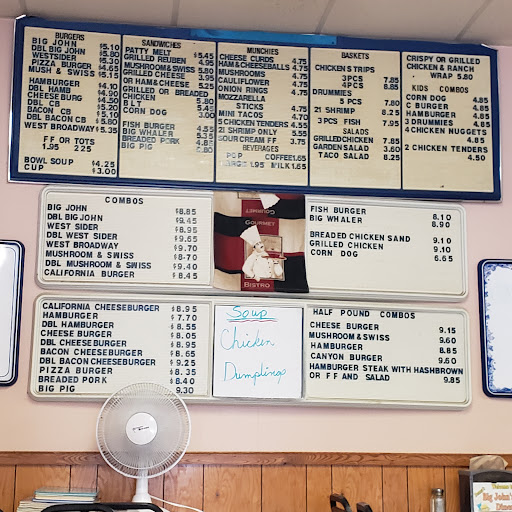 BURGERS
BIG JOHN $5.10
DBL BIG JOHN 5.80
WESTSIDER 5.30
PIZZA BURGER $4.65
MUSH & SWISS $5.15
HAMBURGER $4.10
DBL HAMB $4.90
CHEESEBURG $4.50
DBL CB $5.20
BACON CB $5.10
DBL BACON CB $5.80
WEST BROADWAY $5.35
FF OR TOTS
1.95 225
BOWL SOUP $4.25
CUP $3.00
SANDWICHES
PATTY MELT $5.45
GRILLED REUBEN 4.95
MUSHROOM & SWISS 5.80
GRILLED CHEESE 3.95
OR HAM & CHEESE 5.25
GRILLED OR BREADED
CHICKEN 5.80
BLT 5.45
CORN DOG 3.00
FISH BURGER 4.55
BIG WHALER 5.35
BREADED PORK 4.85
BIG PIG
MUNCHIES
CHEESE CURDS 4.75
HAM & CHEESEBALLS 4.75
MUSHROOMS 4.75
CAULIFLOWER 4.75
ONION RINGS 4.75
MOZZARELLA
STICKS 4.75
MINI TACOS 4.70
5 CHICKEN TENDERS 4.55
21 SHRIMP ONLY 5.55
SOUR CREAM FF 3.75
BEVERAGES
POP COFFEE 1.65
LARGE 1.95 MILK 1.65
BASKETS
CHICKEN STRIPS
3 PCS 7.85
4 PCS 8.85
DRUMMIES
5 PCS 7.80
21 SHRIMP 8.25
3 PCS FISH 7.95
SALADS
GRILLED CHICKEN 7.85
GARDEN SALAD 3.60
TACO SALAD 8.25
CRISPY OR GRILLED
CHICKEN & RANCH
WRAP 5.80
KIDS COMBOS
CORN DOG 4.85
C BURGER 4.85
HAMBURGER 4.85
3 DRUMMIES 4.85
4 CHICKEN NUGGETS
4.85
2 CHICKEN TENDERS
4.50
COMBOS
BIG JOHN $8.85
DBL BIG JOHN $9.45
WEST SIDER $8.95
DBL WEST SIDER $9.65
WEST BROADWAY $9.70
MUSHROOM & SWISS $8.70
DBL MUSHROOM & SWISS $9.40
CALIFORNIA BURGER $8.45
GOURMET
GOURMET
BISTRO
FISH BURGER 8.10
BIG WHALER 8.90
BREADED CHICKEN SAND 9.10
GRILLED CHICKEN 9.10
CORN DOG 6.65
CALIFORNIA CHEESEBURGER $8.95
HAMBURGER $7.70
DBL HAMBURGER $8.55
CHEESE BURGER $8.05
DBL CHEESEBURGER $8.95
BACON CHEESEBURGER $8.65
DBL BACON CHEESEBURGER $9.25
PIZZA BURGER $8.35
BREADED PORK $8.40
BIG PIG 9.30
Soup
Chicken
Dumplings
HALF POUND COMBOS
CHEESE BURGER 9.15
MUSHROOM & SWISS 9.60
HAMBURGER 8.85
CANYON BURGER 9.60
HAMBURGER STEAK WITH HASHBROWN
OR FF AND SALAD 9.85
Big John's
Diner